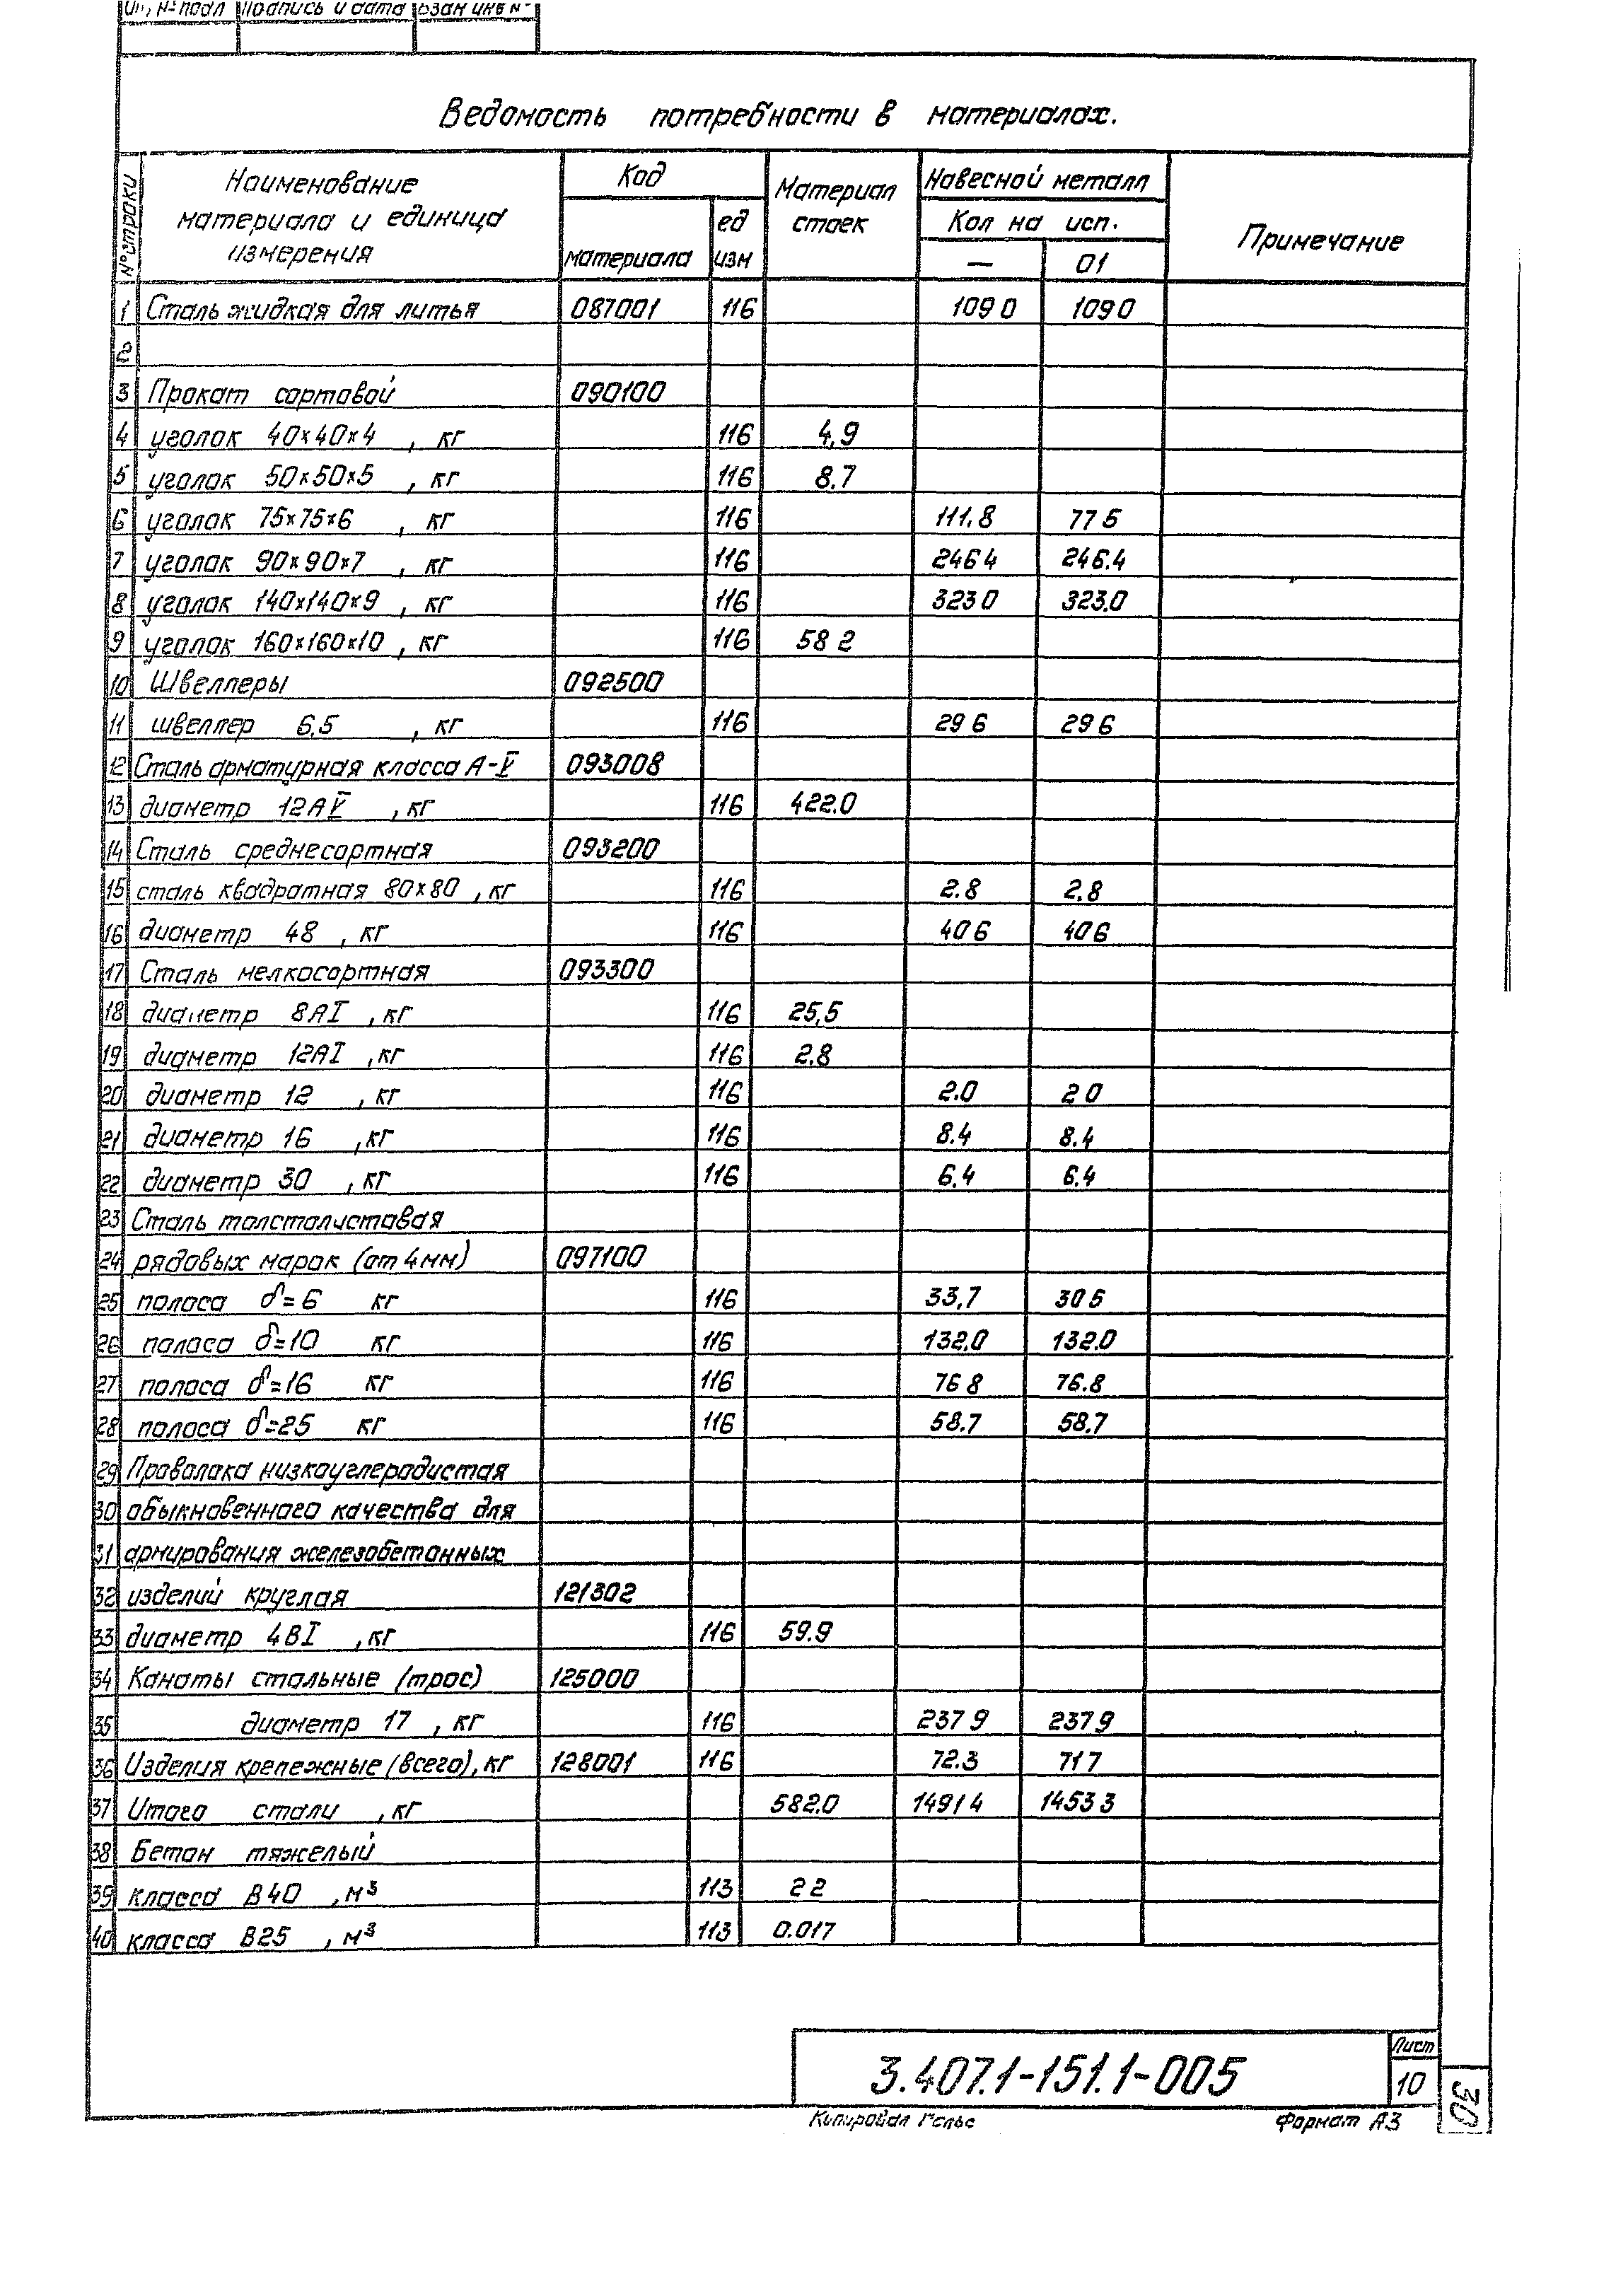 Инв. № подл Подпись и дата Взам инв №
Ведомость потребности в материалах.
№ строки Наименование материала и единица измерения Код Материал стоек Навесной металл Примечание
материала ед изм Кол на исп.
— 01
1 Сталь жидкая для литья 087001 116 109 0 109 0
2
3 Прокат сортовой 090100
4 уголок 40×40×4 , кг 116 4,9
5 уголок 50×50×5 , кг 116 8.7
6 уголок 75×75×6 , кг 116 111.8 77 5
7 уголок 90×90×7 , кг 116 246 4 246.4
8 уголок 140×140×9 , кг 116 323 0 323.0
9 уголок 160×160×10 , кг 116 58 2
10 Швеллеры 092500
11 швеллер 6,5 , кг 116 29 6 29 6
12 Сталь арматурная класса А-V 093008
13 диаметр 12АV , кг 116 422.0
14 Сталь среднесортная 093200
15 сталь квадратная 80×80 , кг 116 2.8 2,8
16 диаметр 48 , кг 116 40 6 40 6
17 Сталь мелкосортная 093300
18 диаметр 8АI , кг 116 25,5
19 диаметр 12АI , кг 116 2.8
20 диаметр 12 , кг 116 2.0 2 0
21 диаметр 16 , кг 116 8.4 8.4
22 диаметр 30 , кг 116 6,4 6,4
23 Сталь толстолистовая
24 рядовых марок (от 4 мм) 097100
25 полоса δ=6 кг 116 33,7 30 5
26 полоса δ=10 кг 116 132.0 132.0
27 полоса δ=16 кг 116 76 8 76.8
28 полоса δ=25 кг 116 58.7 58.7
29 Проволока низкоуглеродистая
30 обыкновенного качества для
31 армирования железобетонных
32 изделий круглая 121302
33 диаметр 4ВI , кг 116 59.9
34 Канаты стальные (трос) 125000
35 диаметр 17 , кг 116 237 9 237 9
36 Изделия крепежные (всего), кг 128001 116 72.3 71 7
37 Итого стали , кг 582.0 1491 4 1453 3
38 Бетон тяжелый
39 класса В40 , м³ 113 2 2
40 класса В25 , м³ 113 0.017
3.407.1-151.1-005
Лист
10
30
Копировал Формат А3